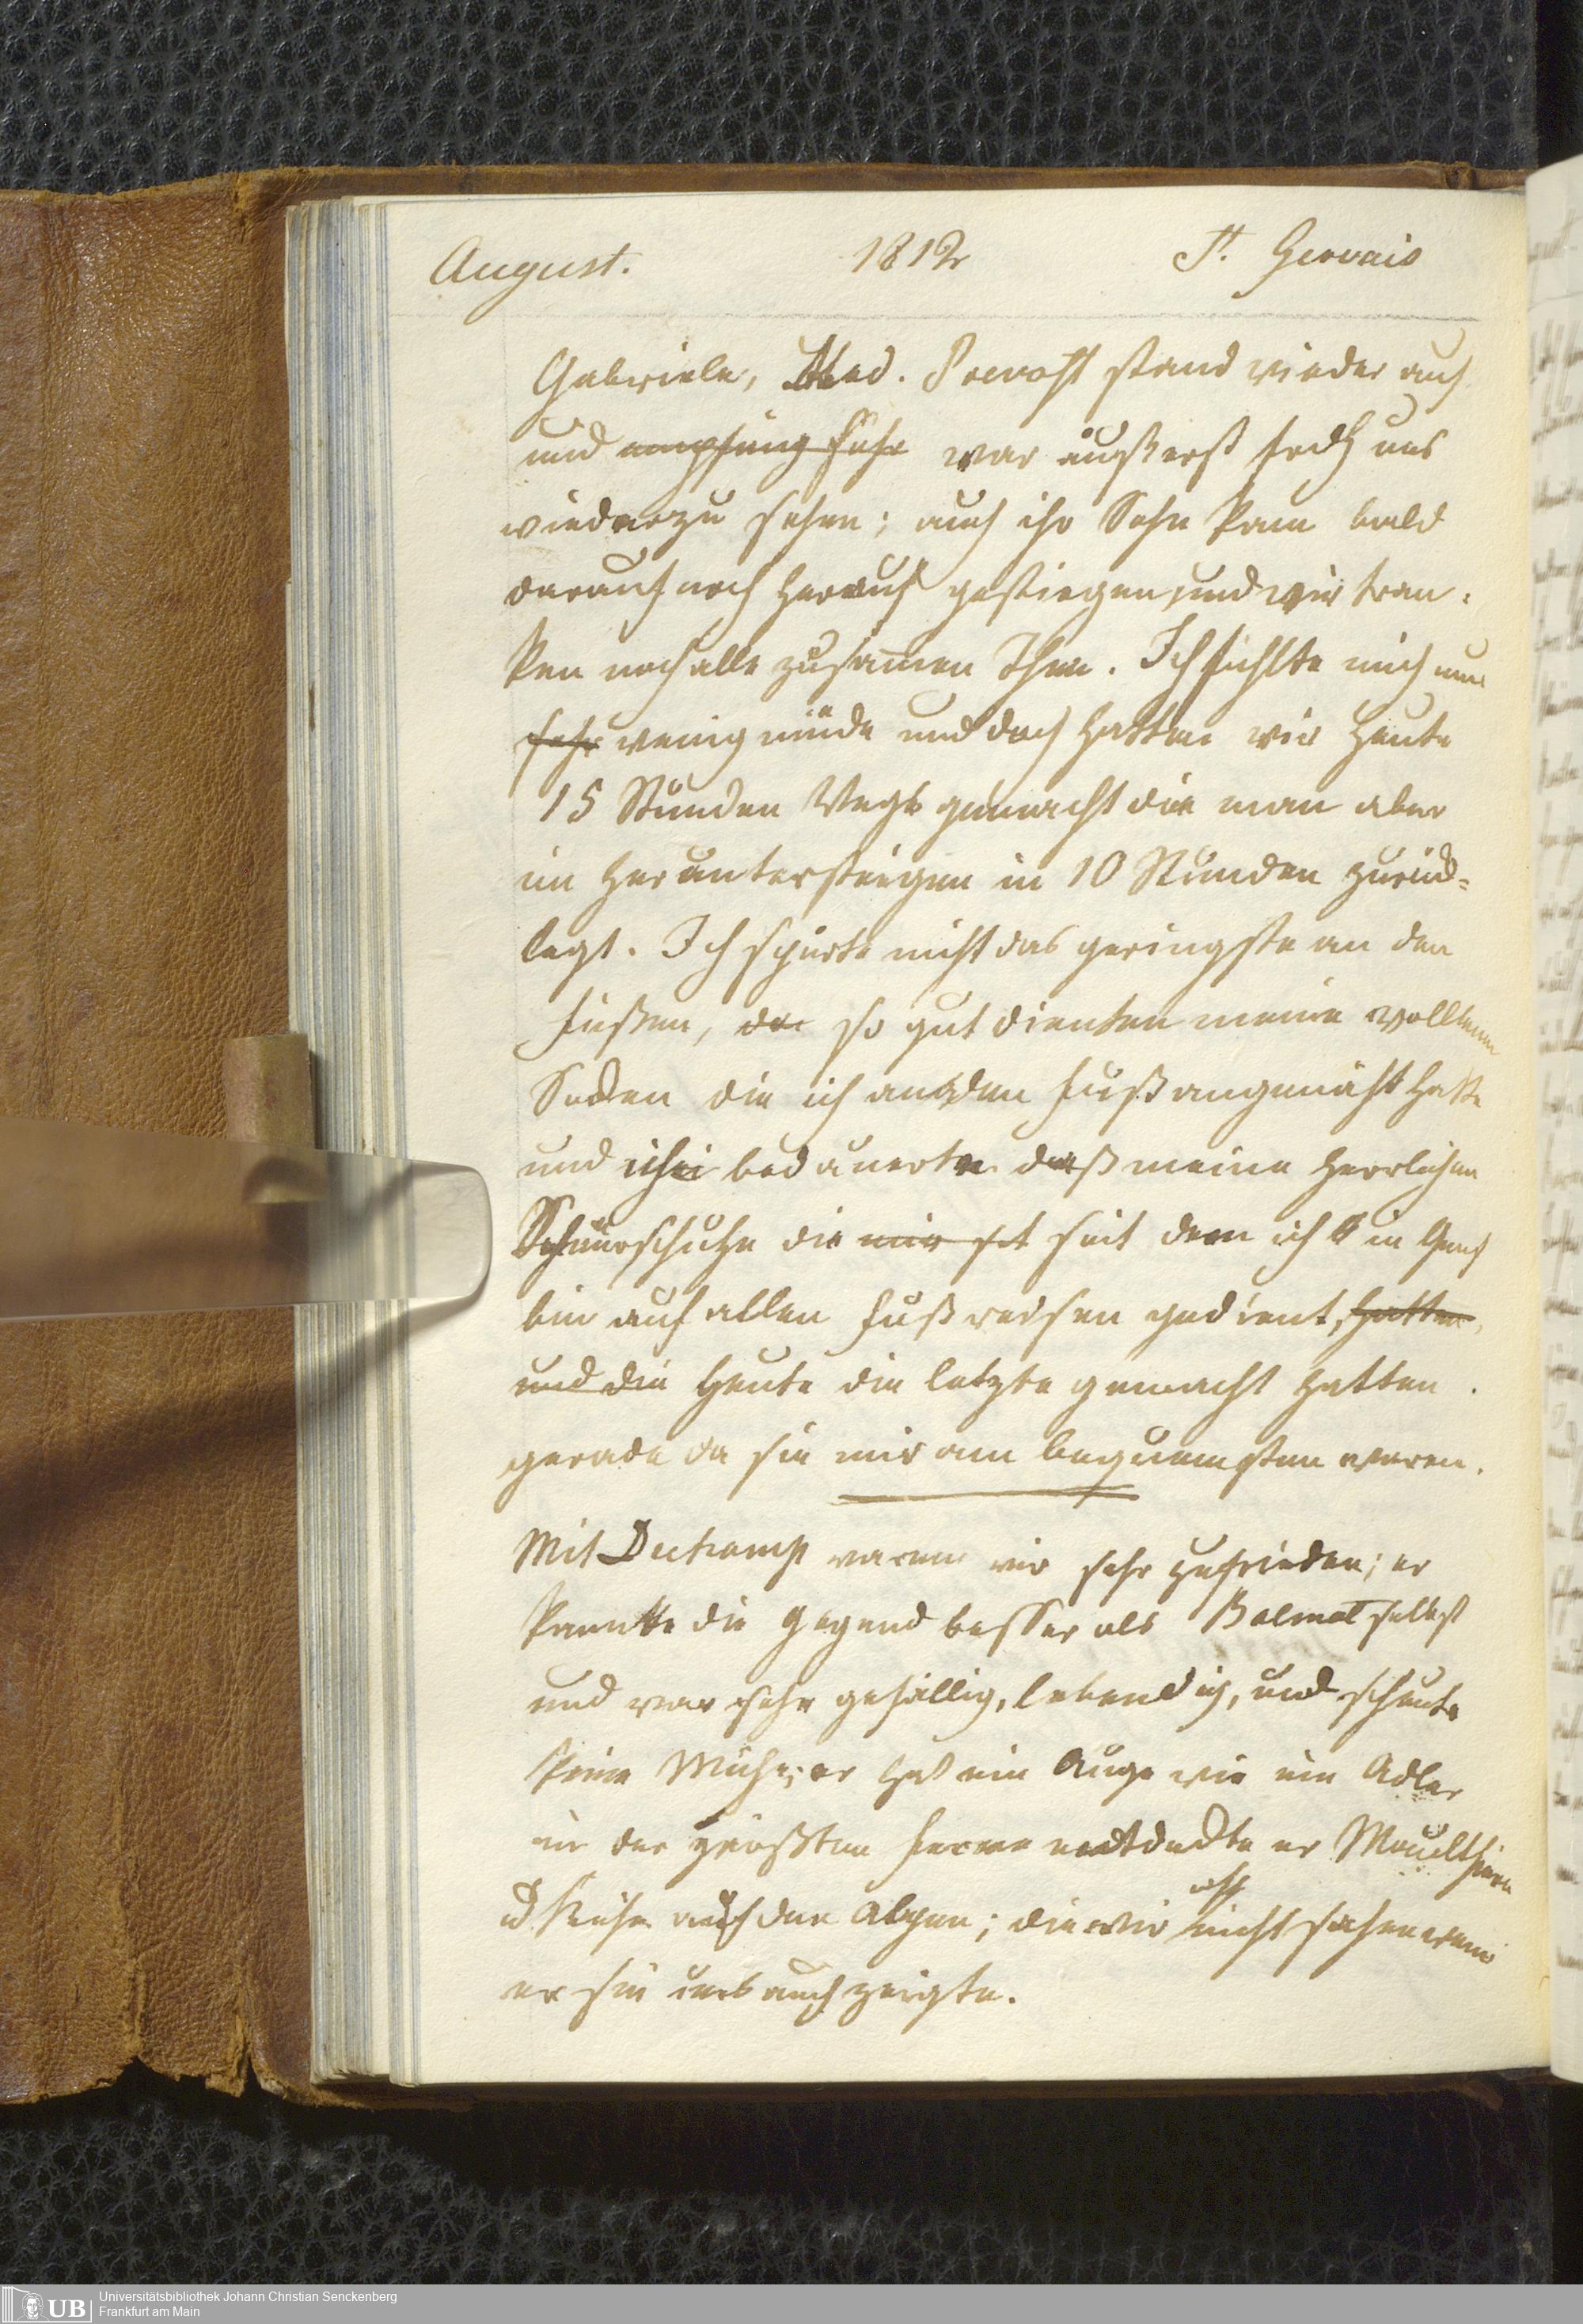 August. 1812 St. Gervais
Gabriele, Mad. Prevost stand wieder auf
und empfing sehr war äußerst froh uns
wiederzu sehen; auch ihr Sohn kam bald
darauf noch herauf gestiegen, und wir tran-
ken noch alle zusamen Thee. Ich fühlte mich nur
sehr wenig müde und doch hatten wir heute
15 Stunden Wegs gemacht die man aber
im heruntersteigen in 10 Stunden zurück-
legt. Ich spürte nicht das geringste an den
Füßen, so gut dienten meine wollenen
Socken die ich an den Fuß angenäht hatte
und ich bedauerte daß meine herrlichen
Schnürschuhe die mir seit dem ich in Genf
bin auf allen Fußreisen gedient, hatten,
und die heute die letzte gemacht hatten.
gerade da sie mir am bequemsten waren.
Mit Ducamp waren wir sehr zufrieden; er
kannte die Gegend besser als Balmat selbst
und war sehr gefällig, lebendig, und scheute
keine Mühe; er hat ein Auge wie ein Adler
in der größten Ferne entdeckte er Maulthiere
u Kühe auf den Alpen; die wir oft nicht sahen wenn
er sie uns auch zeigte.
UB Universitätsbibliothek Johann Christian Senckenberg
Frankfurt am Main